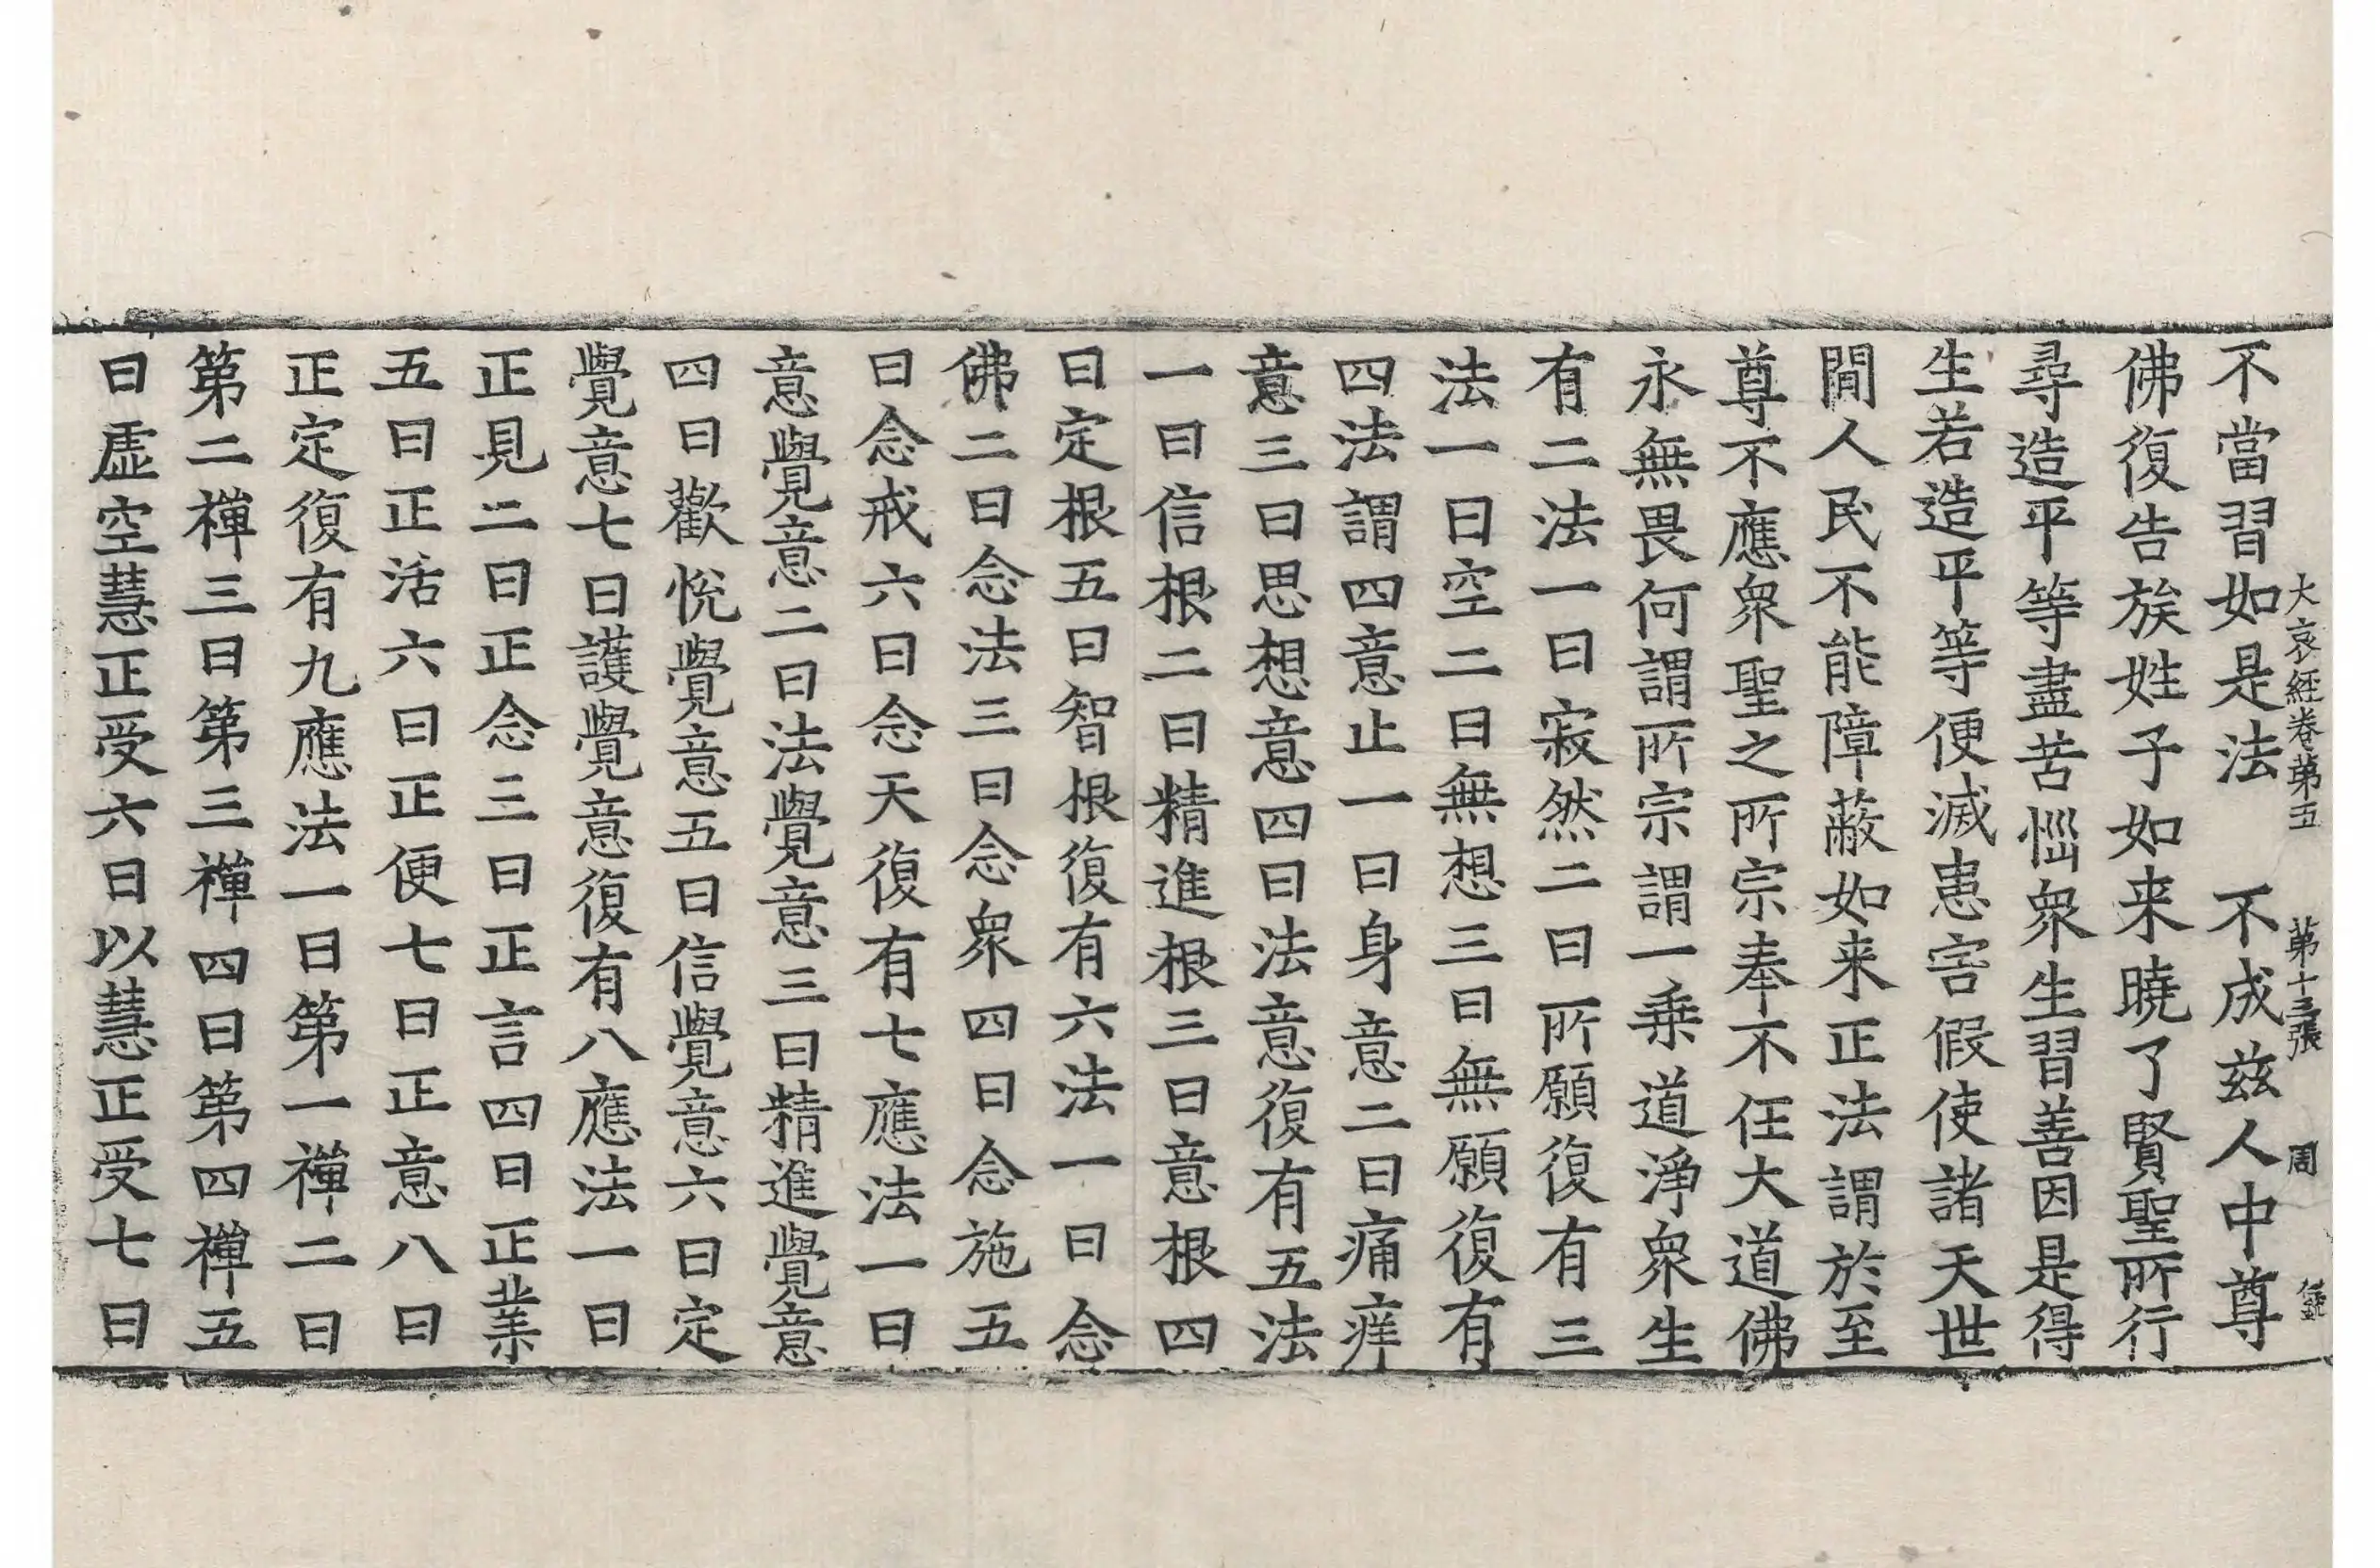 大哀經卷第五 第十三張 周
不當習如是法 不成茲人中尊
佛復告族姓子如来曉了賢聖所行
尋造平等盡苦惱衆生習善因是得
生若造平等便滅恚害假使諸天世
間人民不能障蔽如来正法謂於至
尊不應衆聖之所宗奉不任大道佛
永無畏何謂所宗謂一乗道淨衆生
有二法一曰寂然二曰所願復有三
法一曰空二曰無想三曰無願復有
四法謂四意止一曰身意二曰痛痒
意三曰思想意四曰法意復有五法
一曰信根二曰精進根三曰意根四
曰定根五曰智根復有六法一曰念
佛二曰念法三曰念衆四曰念施五
曰念戒六曰念天復有七應法一曰
意覺意二曰法覺意三曰精進覺意
四曰歡悅覺意五曰信覺意六曰定
覺意七曰護覺意復有八應法一曰
正見二曰正念三曰正言四曰正業
五曰正活六曰正便七曰正意八曰
正定復有九應法一曰第一禪二曰
第二禪三曰第三禪四曰第四禪五
曰虛空慧正受六曰以慧正受七曰